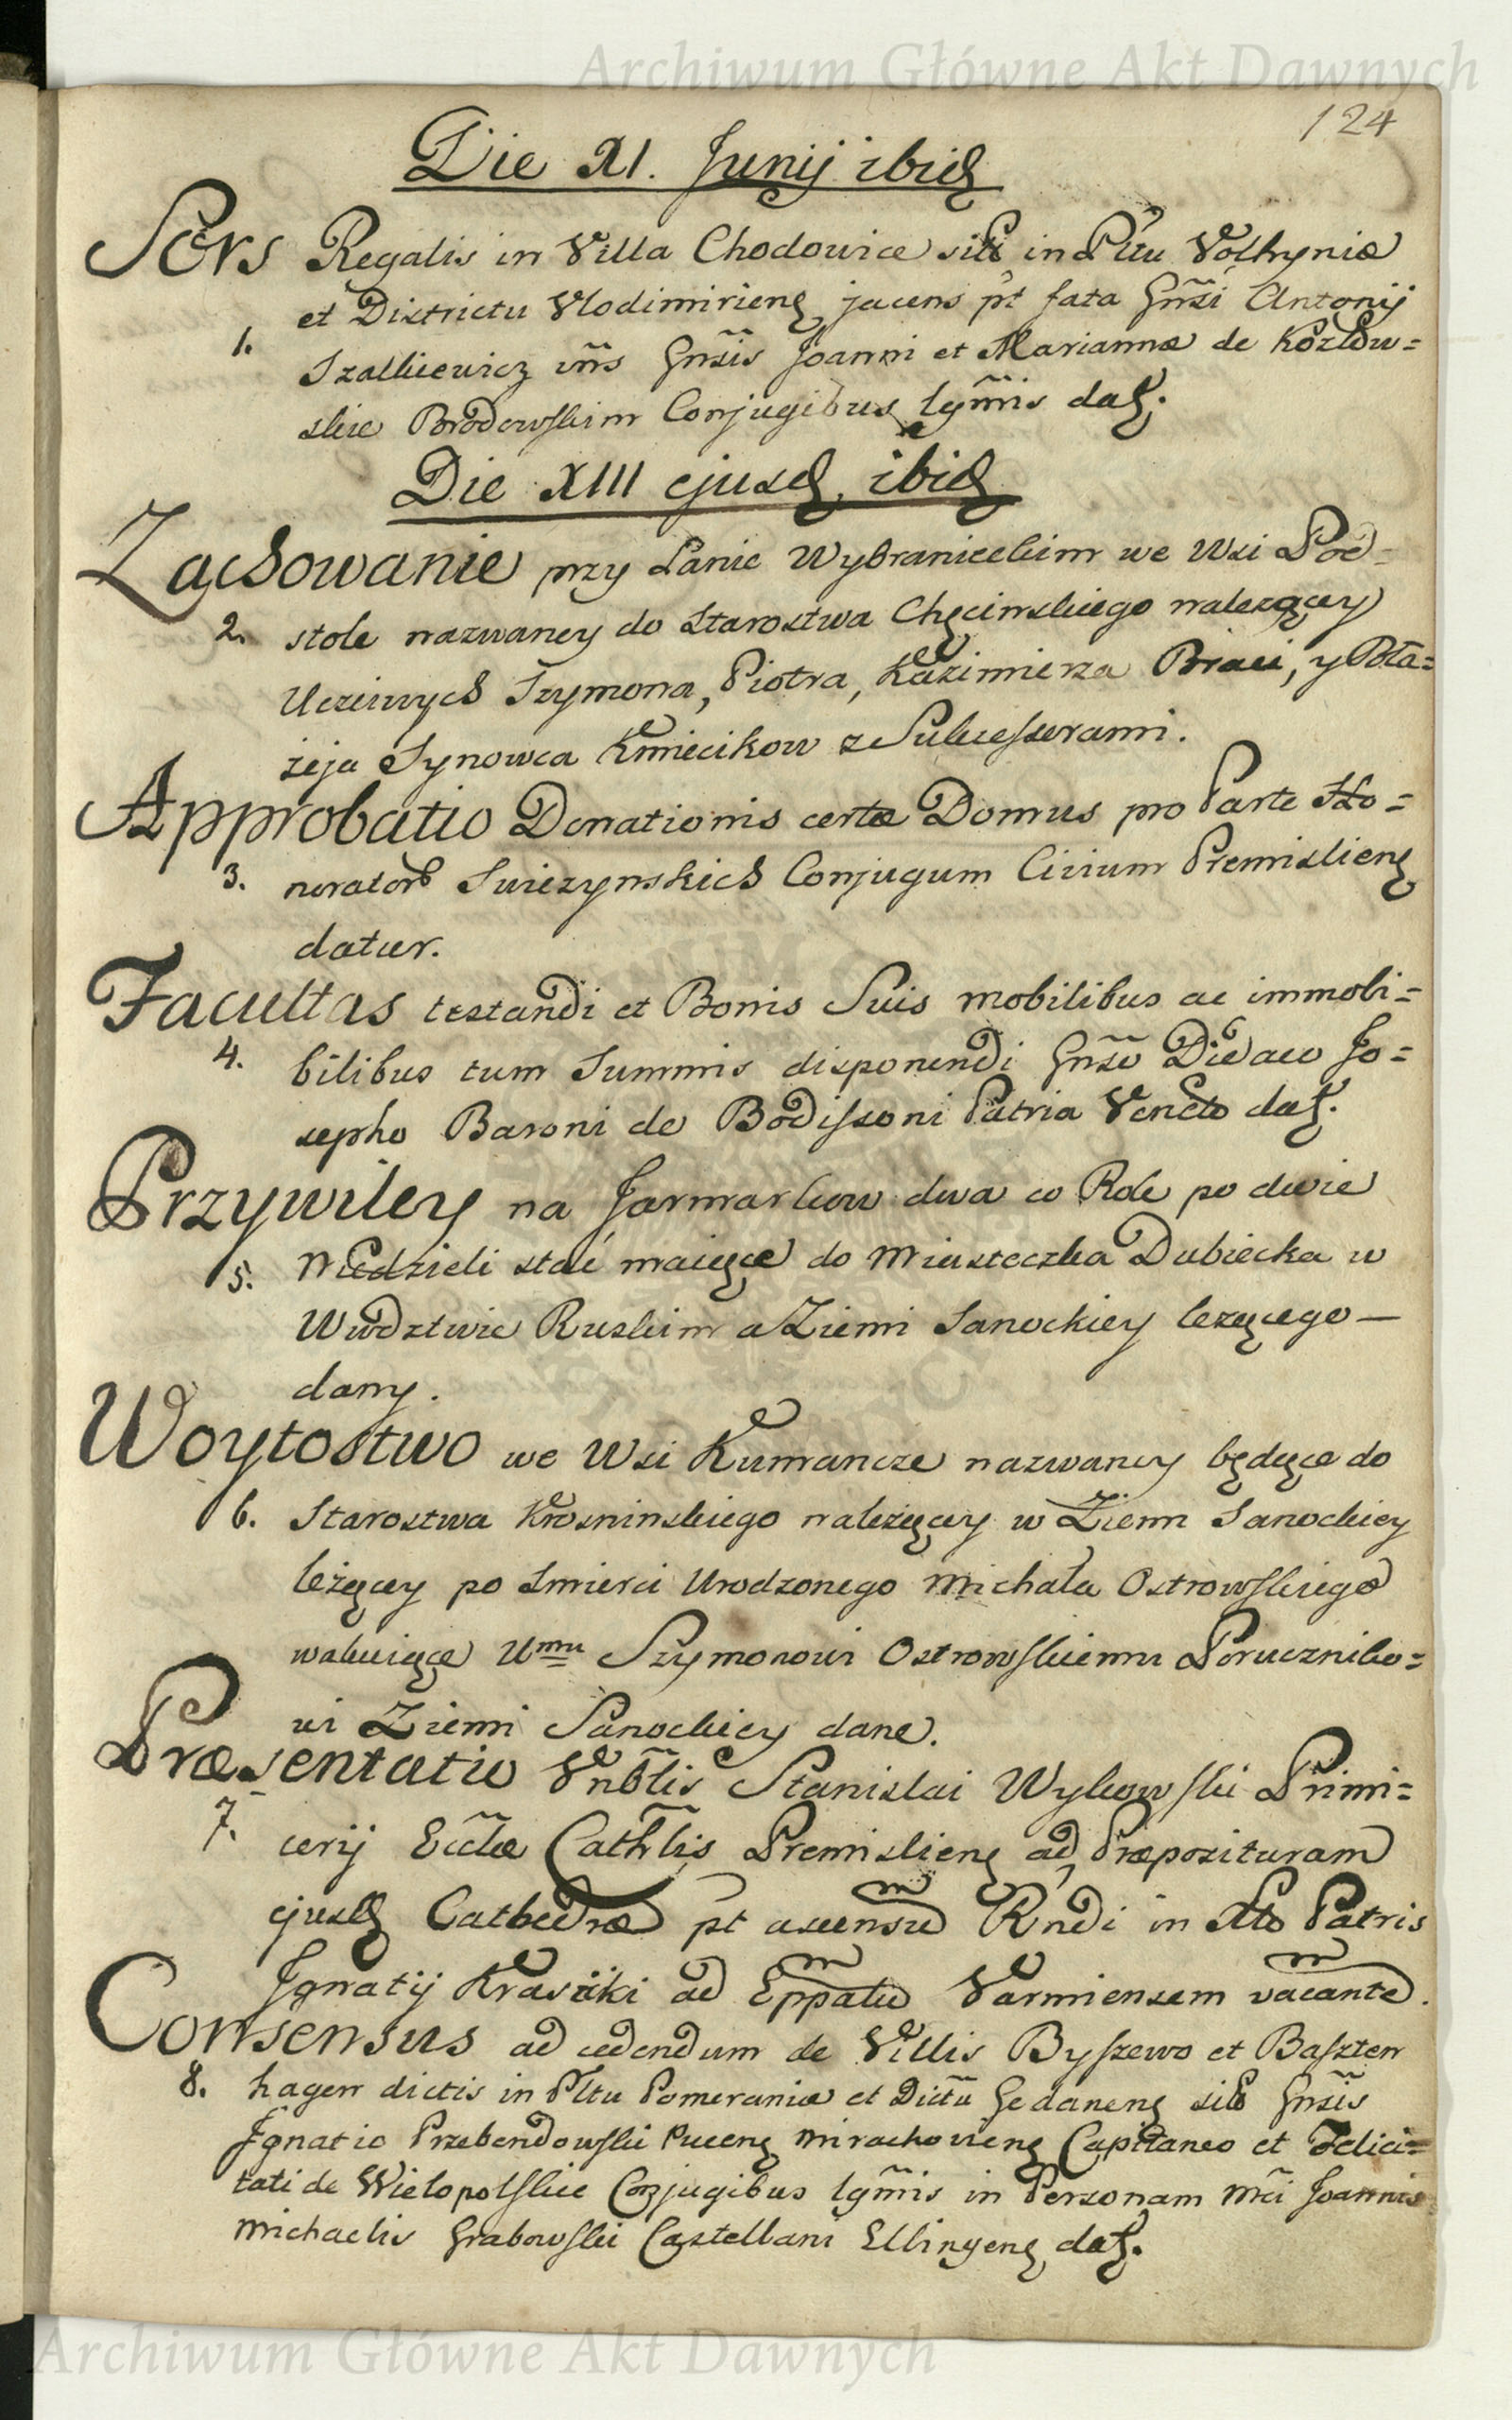 Archiwum Główne Akt Dawnych
124
Die XI. Junij ibid
Sors Regalis in Villa Chodowice sita in Pltu Wolhyniæ
et Districtu Vlodimiriens jacens pt fata Gnsi Antonij
1.
Szalkiewicz vñs Gnsis Joanni et Mariannæ de Kozlow=
skie Brodowskim Conjugibus lgmis dat.
Die XIII ejusd ibid
Zachowanie przy Łanie Wybranieckim we Wsi Pod=
2. stole nazwaney do Starostwa Chęcinskiego należącey
Uczciwych Szymona, Piotra, Kazimierza Braci, y Bła=
żeja Synowca Kmiecikow z Sukcessorami.
Approbatio Donationis certæ Domus pro Parte Ho=
3. norator Swiezynskich Conjugum Civium Premisliens
datur.
Facultas testandi et Bonis Suis mobilibus ac immobi=
4. bilibus tum Summis disponendi Gnso Didaco Jo=
sepho Baroni de Bodissoni Patria Veneto dat.
Przywiley na Jarmarkow dwa co Rok po dwie
5. Niedzieli stać maiące do Miasteczka Dubiecka w
Wwdztwie Ruskim a Ziemi Sanockiey leżącego —
dany.
Woytostwo we Wsi Kumancze nazwaney będące do
6. Starostwa Krosninskiego należącey w Ziemi Sanockiey
leżącey po Smierci Urodzonego Michała Ostrowskiego
wakuiące Umu Szymonowi Ostrowskiemu Poruczniko=
wi Ziemi Sanockiey dane.
Præsentatio Vnblis Stanislai Wykowski Primi=
7. cerij Ecclæ Cathlis Premisliens ad Præposituram
ejusd Cathedræ pt ascensu Rndi in Xto Patris
Ignatij Krasicki ad Eppatu Varmiensem vacante.
Consensus ad cedendum de Villis Byszewo et Baszten
8. hagen dictis in Pltu Pomeraniæ et Dictu Gedanens sitis Gnsis
Ignatio Przebendowski Pucens Mirachoviens Capitaneo et Felici=
tati de Wielopolskie Conjugibus lgmis in Personam Mci Joannis
Michaelis Grabowski Castellani Elbingens dat.
Archiwum Główne Akt Dawnych